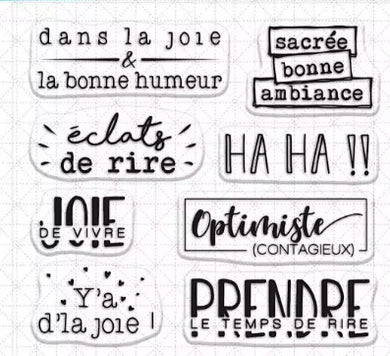 dans la joie
&
la bonne humeur
sacrée
bonne
ambiance
éclats
de rire
HA HA !!
JOIE
DE VIVRE
Optimiste
(CONTAGIEUX)
Y'a
d'la joie !
PRENDRE
LE TEMPS DE RIRE